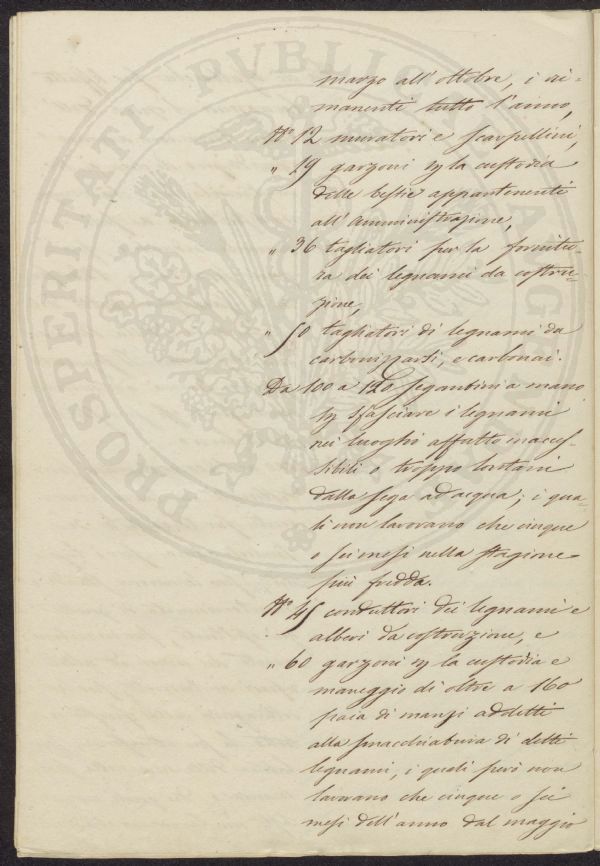 PROSPERITATI PVBLICAE
marzo all'ottobre, i ri=
manenti tutto l'anno,
N° 12 muratori e scarpellini,
" 19 garzoni p la custodia
delle bestie appartenenti
all'amministrazione,
" 36 tagliatori per la fornitu=
ra dei legnami da costru=
zione,
" 50 tagliatori di legnami da
carbonizzarsi, e carbonai.
Da 100 a 120 segantini a mano
p sfasciare i legnami
nei luoghi affatto inacces=
sibili o troppo lontani
dalla sega ad acqua; i qua=
li non lavorano che cinque
o sei mesi nella stagione
più fredda.
N° 45 conduttori dei legnami e
alberi da costruzione, e
" 60 garzoni p la custodia e
maneggio di oltre a 160
paia di manzi addetti
alla smacchiatura di detti
legnami, i quali però non
lavorano che cinque o sei
mesi dell'anno dal maggio